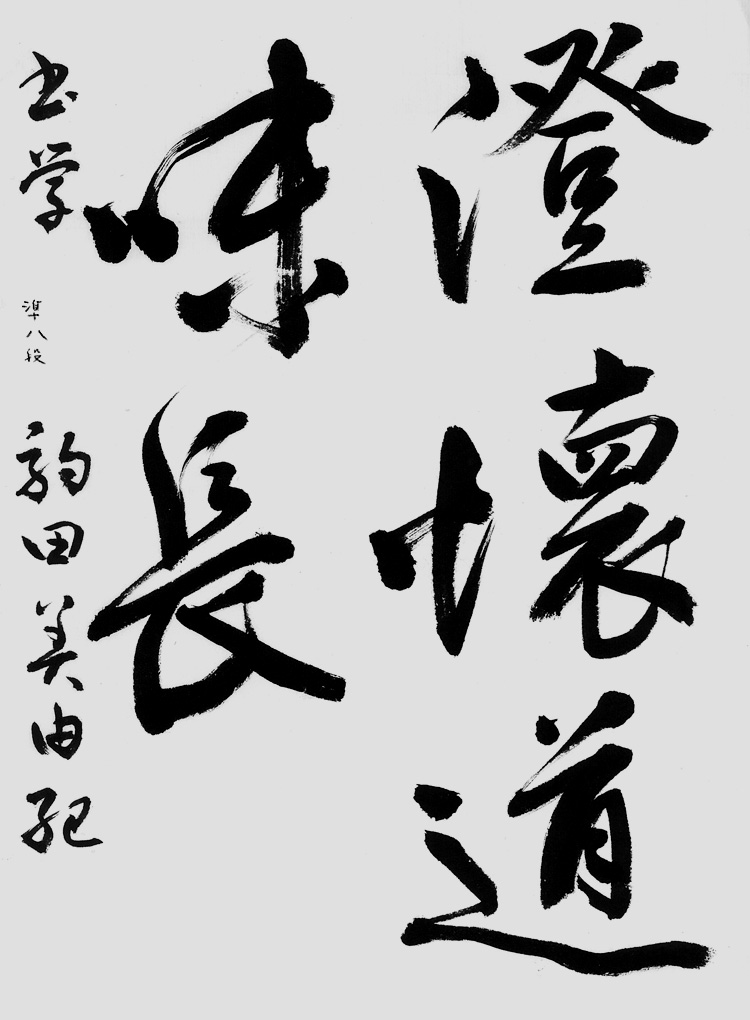 澄懐道
味長
书学 準八段 駒田美由紀